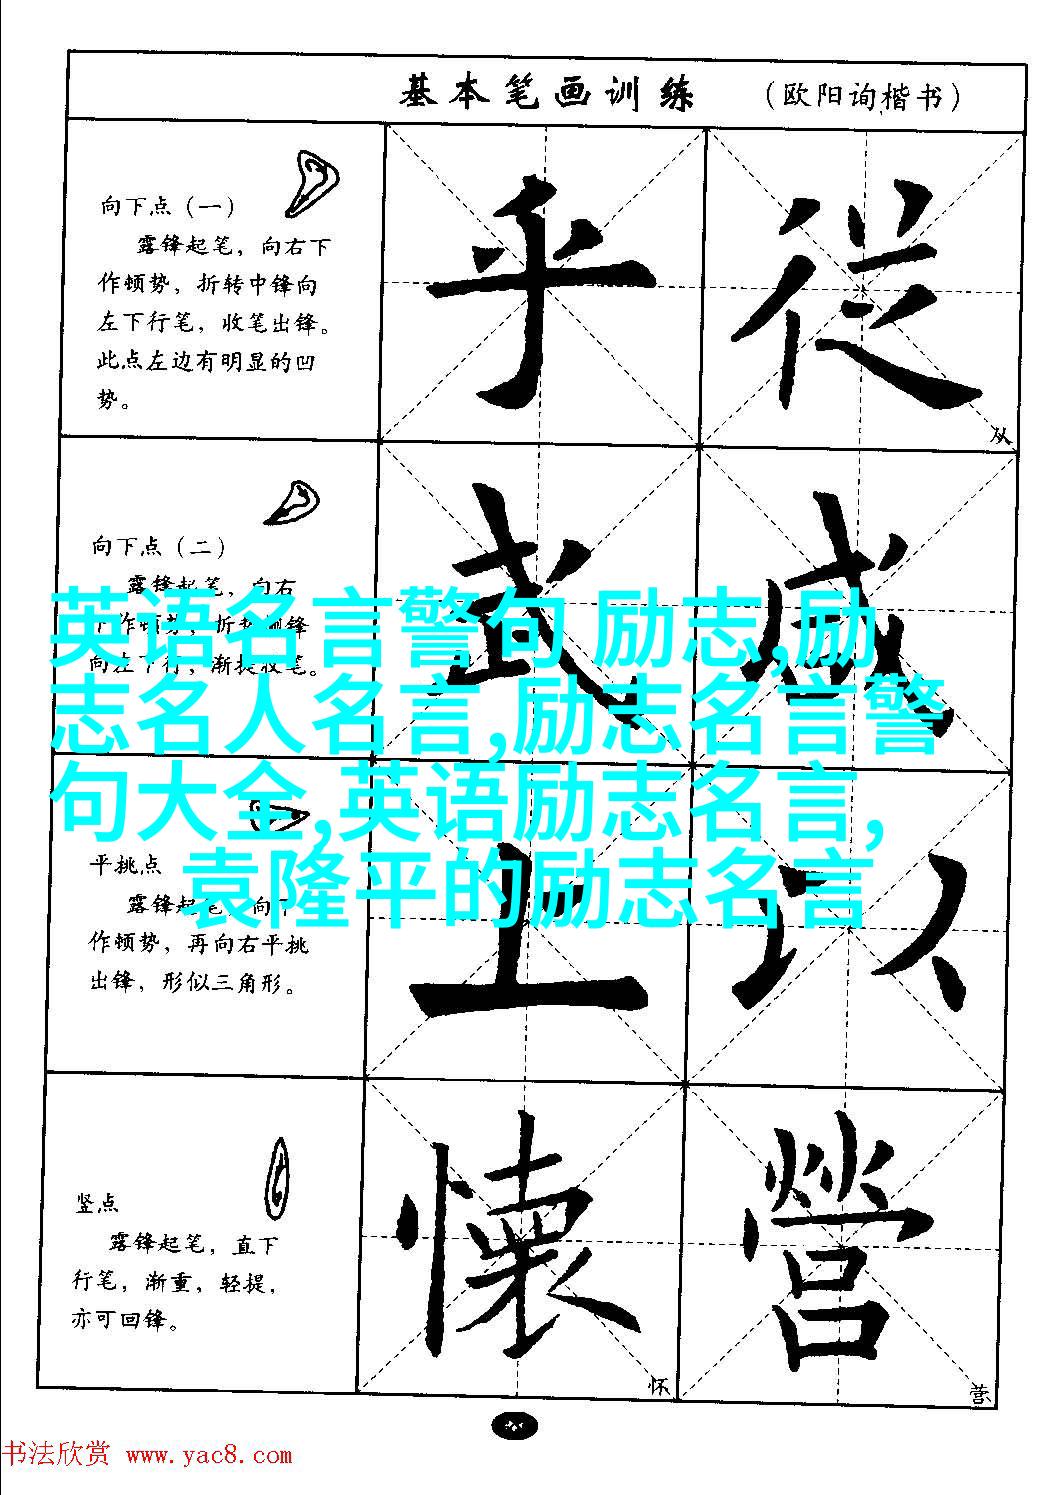 基本笔画训练 （欧阳询楷书）
向下点（一）
露锋起笔，向右下
作顿势，折转中锋向
左下行笔，收笔出锋。
此点左边有明显的凹
势。
乎 從
从
向下点（二）
露锋起笔，向右
下作顿势，折转侧锋
向左下行，渐提收笔。
武 咸
英语名言警句 励志,励
志名人名言,励志名言警
句大全,英语励志名言,
袁隆平的励志名言
平挑点
露锋起笔，向下
作顿势，再向右平挑
出锋，形似三角形。
上 以
竖点
露锋起笔，直下
行笔，渐重，轻提，
亦可回锋。
懷 營
怀 营
书法欣赏 www.yac8.com